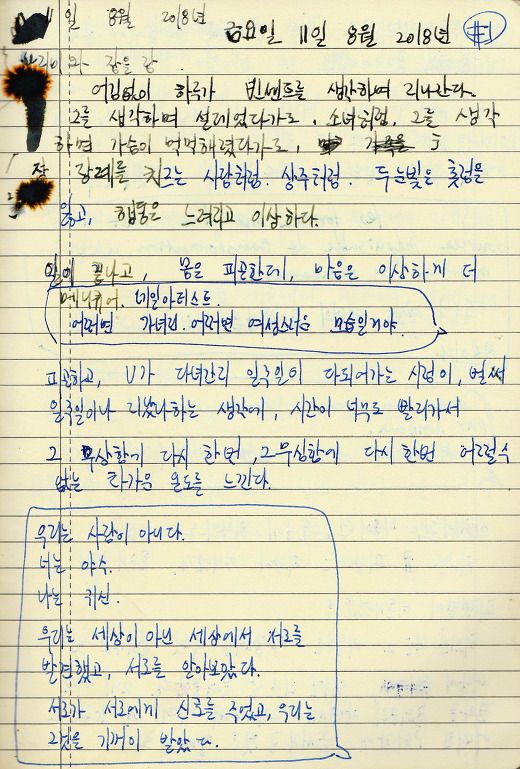 일 8월 2018년
금요일 11일 8월 2018년 #1
어김없이 하루가 빈센트를 생각하며 지나간다.
그를 생각하며 설레였다가도, 소녀처럼, 그를 생각
하면 가슴이 먹먹해졌다가도,
장례를 치르는 사람처럼. 상주처럼. 두 눈빛은 촛점을
잃고, 행동은 느려지고 이상하다.
일이 끝나고, 몸은 피곤한데, 마음은 이상하게 더
메니큐어. 네일아티스트.
어쩌면 가녀린. 어쩌면 여성스러운 모습일거야.
피곤하고, V가 다녀간리 일주일이 다되어가는 시점이, 벌써
일주일이나 지났다하는 생각에, 시간이 너무도 빨리가서
그 무상함에 다시 한번, 그 무심함에 다시 한번 어쩔수
없는 차가운 온도를 느낀다.
우리는 사람이 아니다.
너는 야수.
나는 귀신.
우리는 세상이 아닌 세상에서 서로를
발견했고, 서로를 알아보았다.
서로가 서로에게 신호를 주었고, 우리는
그것을 기꺼이 받았다.